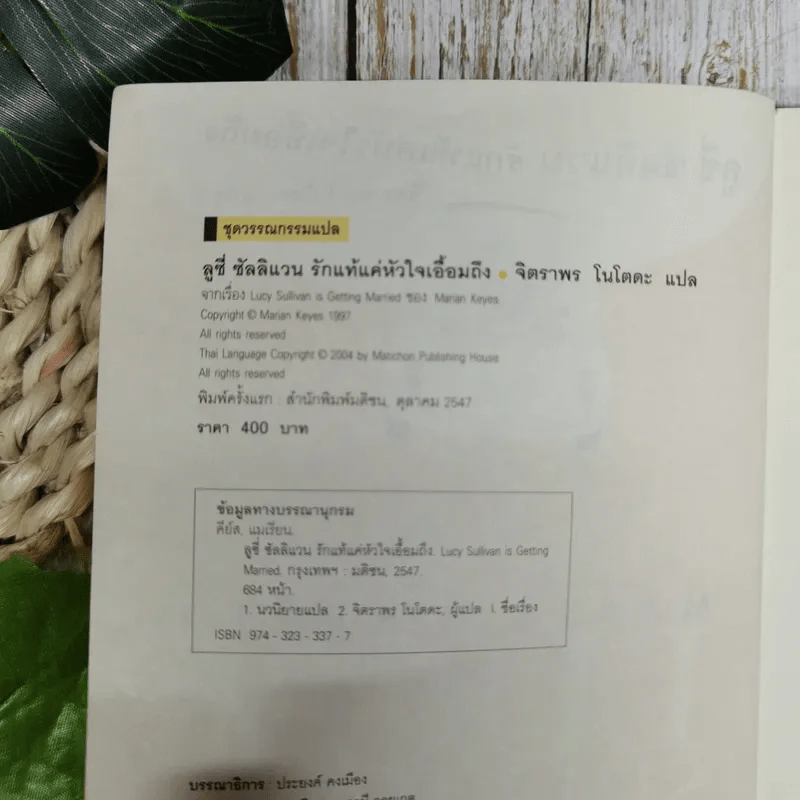 ชุดวรรณกรรมแปล
ลูซี่ ซัลลิแวน รักแท้แค่หัวใจเอื้อมถึง • จิตราพร โนโตดะ แปล
จากเรื่อง Lucy Sullivan is Getting Married ของ Marian Keyes
Copyright © Marian Keyes 1997
All rights reserved
Thai Language Copyright © 2004 by Matichon Publishing House
All rights reserved
พิมพ์ครั้งแรก : สำนักพิมพ์มติชน, ตุลาคม 2547
ราคา 400 บาท
ข้อมูลทางบรรณานุกรม
คีย์ส, แมเรียน.
ลูซี่ ซัลลิแวน รักแท้แค่หัวใจเอื้อมถึง. Lucy Sullivan is Getting
Married. กรุงเทพฯ : มติชน, 2547.
684 หน้า.
1. นวนิยายแปล 2. จิตราพร โนโตดะ, ผู้แปล I. ชื่อเรื่อง
ISBN 974 - 323 - 337 - 7
บรรณาธิการ : ประยงค์ คงเมือง